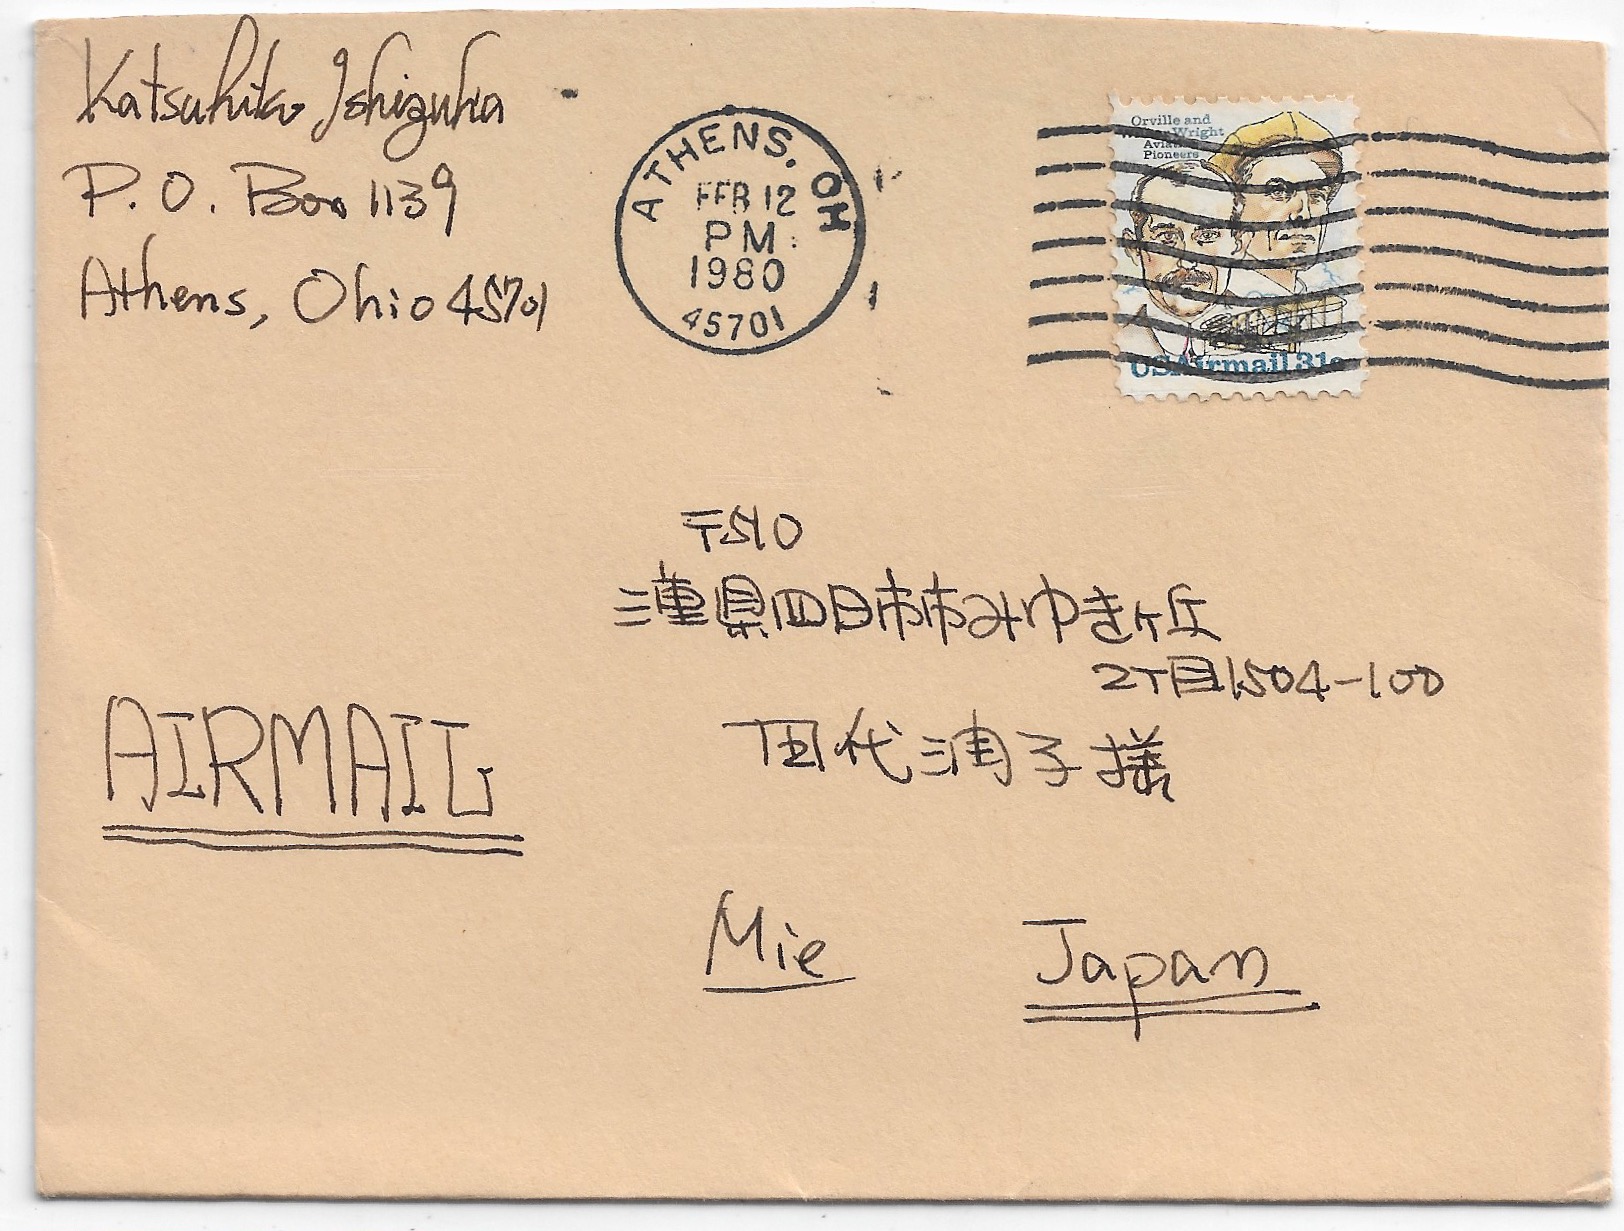 Katsuhiko Ishizuka
P.O. Box 1139
Athens, Ohio 45701
ATHENS, OH
FEB 12
PM
1980
45701
Orville and
Wright
Pioneers
USAirmail 31c
〒510
三重県四日市市みゆきヶ丘
2丁目1504-100
田代浦子様
AIRMAIL
Mie Japan